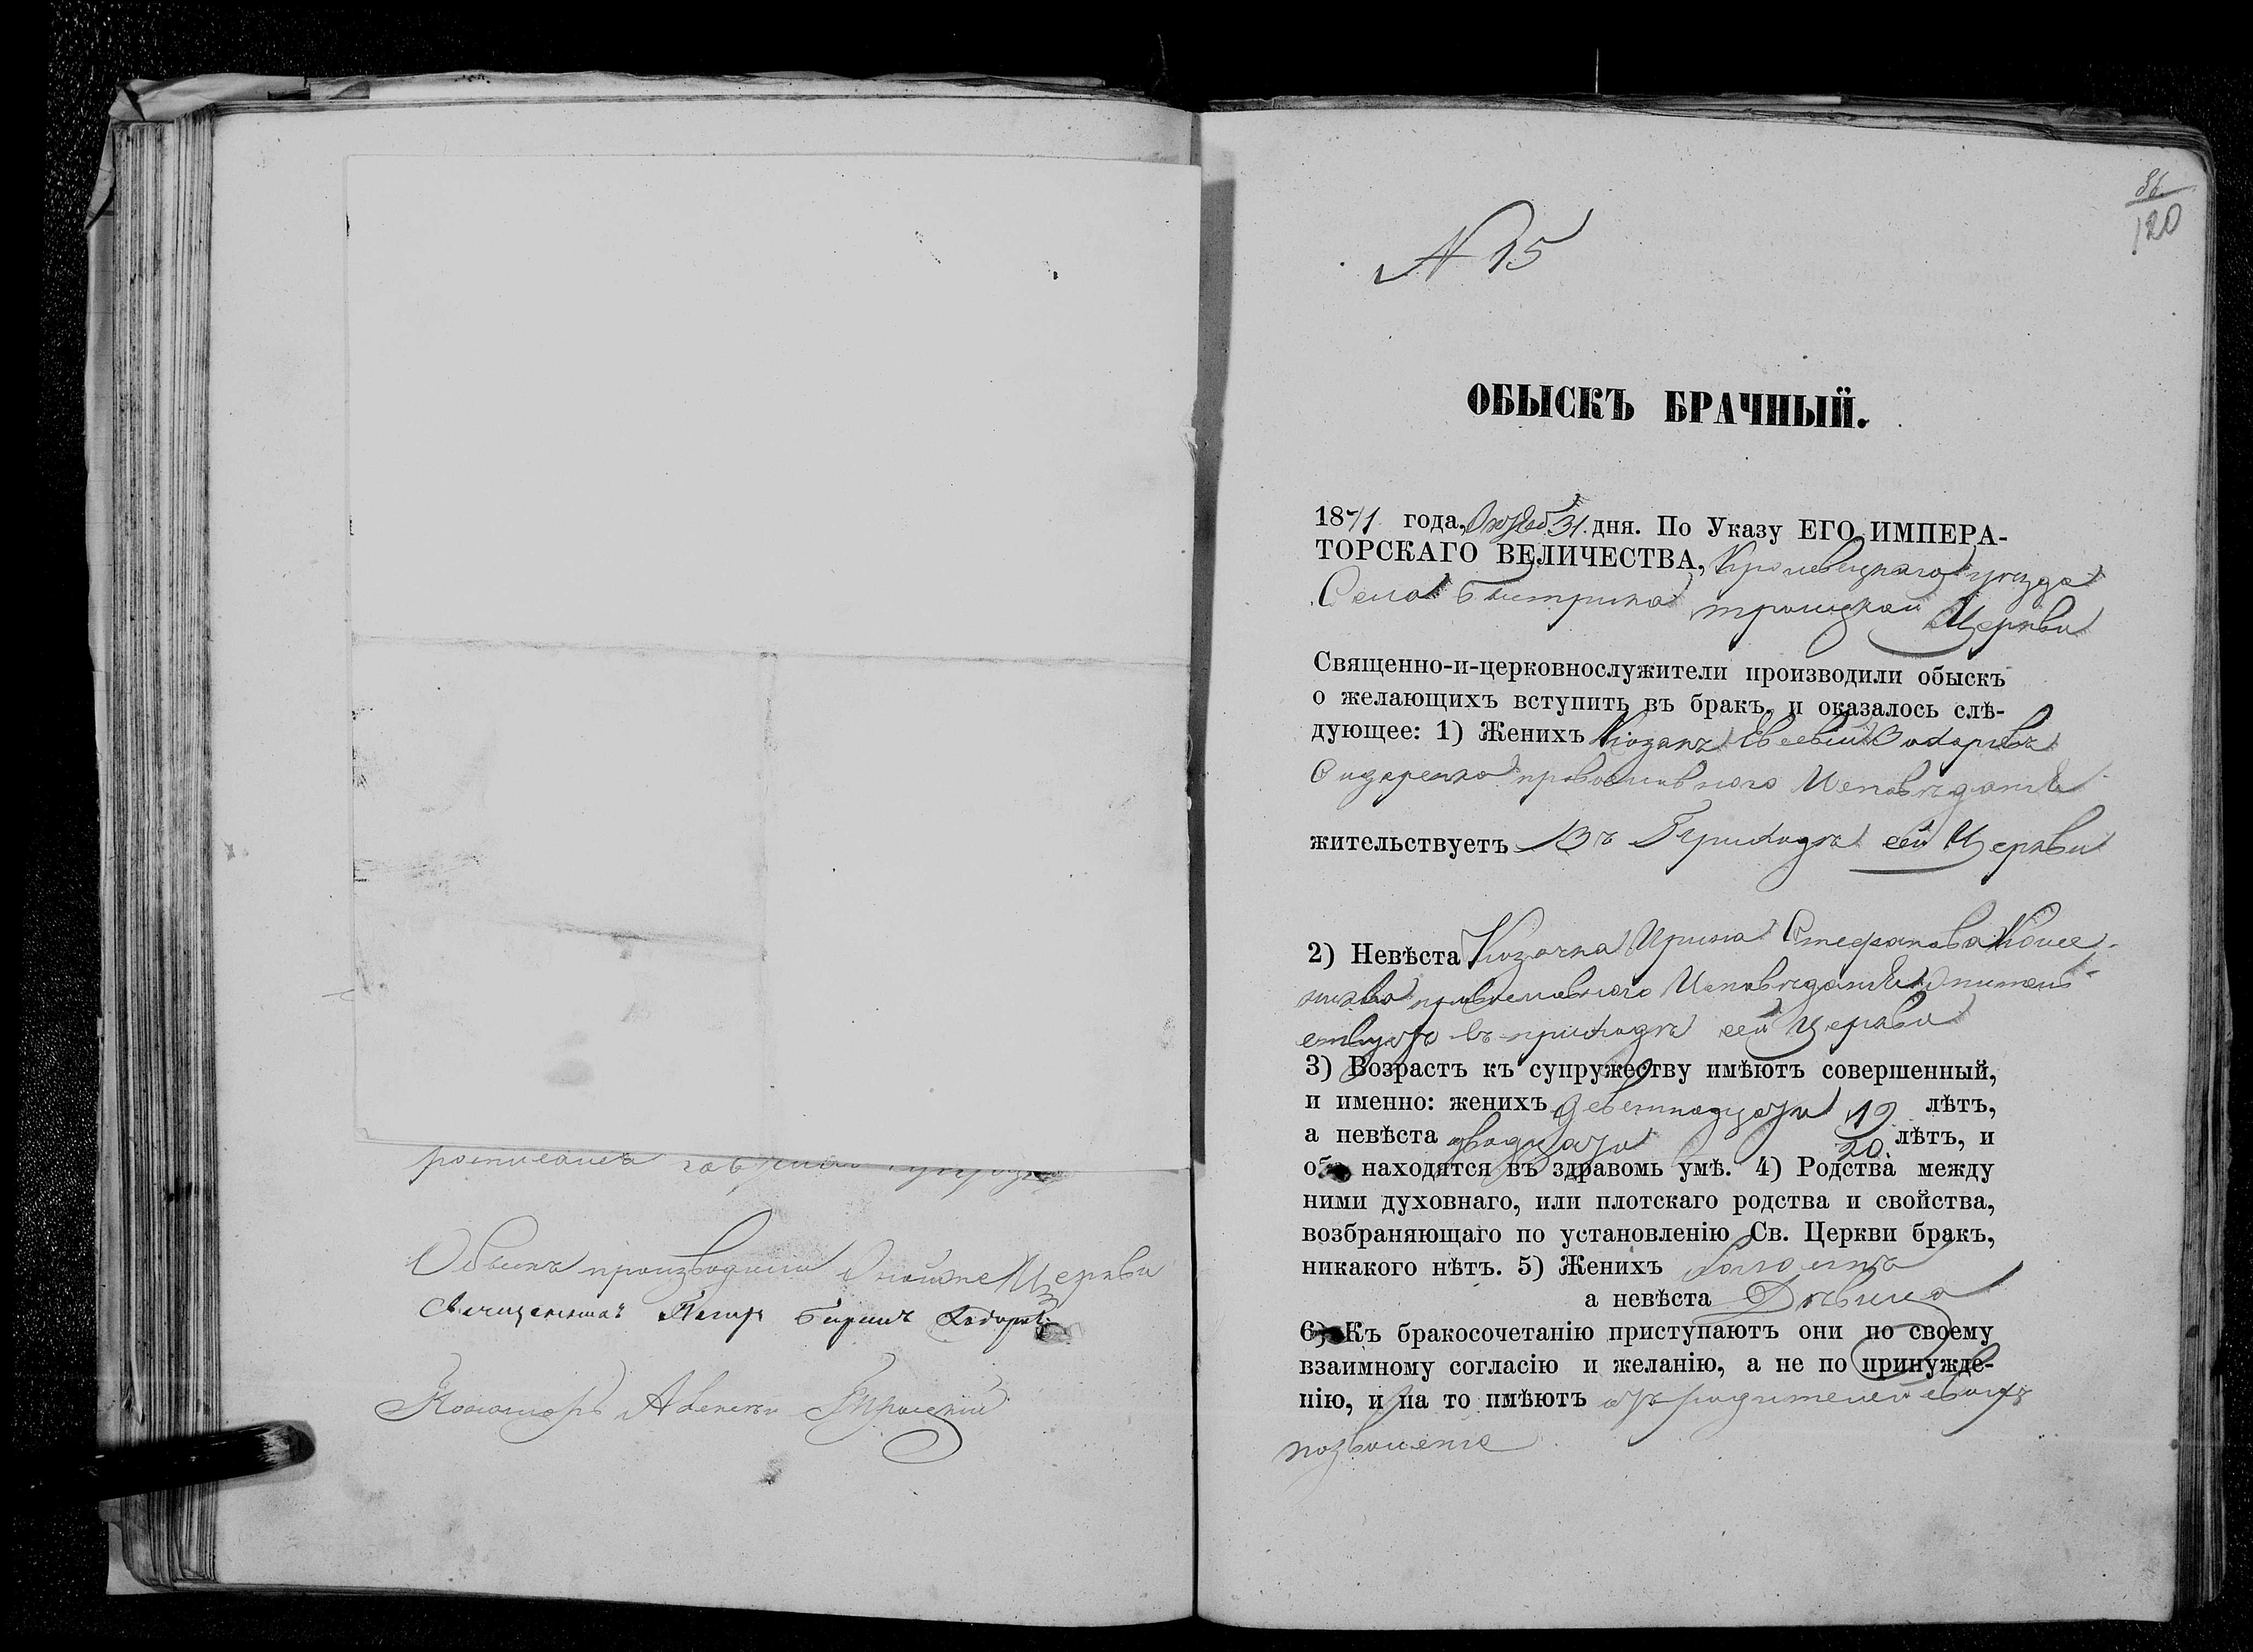 росписался
Обыскъ производили Оноиже Церкви
Священникъ Петр
Пономарь Алексѣй Троицкій
120
N 15
ОБЫСКЪ БРАЧНЫЙ.
1871 года, Октяб. 31. дня. По Указу ЕГО ИМПЕРА-
ТОРСКАГО ВЕЛИЧЕСТВА, Кролевецкаго уезда
Села Быстрика троицкой Церкви
Священно-и-церковнослужители производили обыскъ
о желающихъ вступить въ бракъ, и оказалось слѣ-
дующее: 1) Женихъ Козакъ Евсевій Захаріевъ
Сидаренко православного Исповѣданія
жительствуетъ Въ Приходѣ сей Церкви
2) Невѣста Козачка Ирина Стефанова
православного Исповѣданія жител-
ствуетъ въ приходѣ сей Церкви
3) Возрастъ къ супружеству имѣютъ совершенный,
и именно: женихъ девятнадцати 19 лѣтъ,
а невѣста двадцати 20 лѣтъ, и
оба находятся въ здравомъ умѣ. 4) Родства между
ними духовнаго, или плотскаго родства и свойства,
возбраняющаго по установленію Св. Церкви бракъ,
никакого нѣтъ. 5) Женихъ холостъ
а невѣста Дѣвица
6) Къ бракосочетанію приступаютъ они по своему
взаимному согласію и желанію, а не по принужде-
нію, и на то имѣютъ отъ родителей своихъ
позволеніе